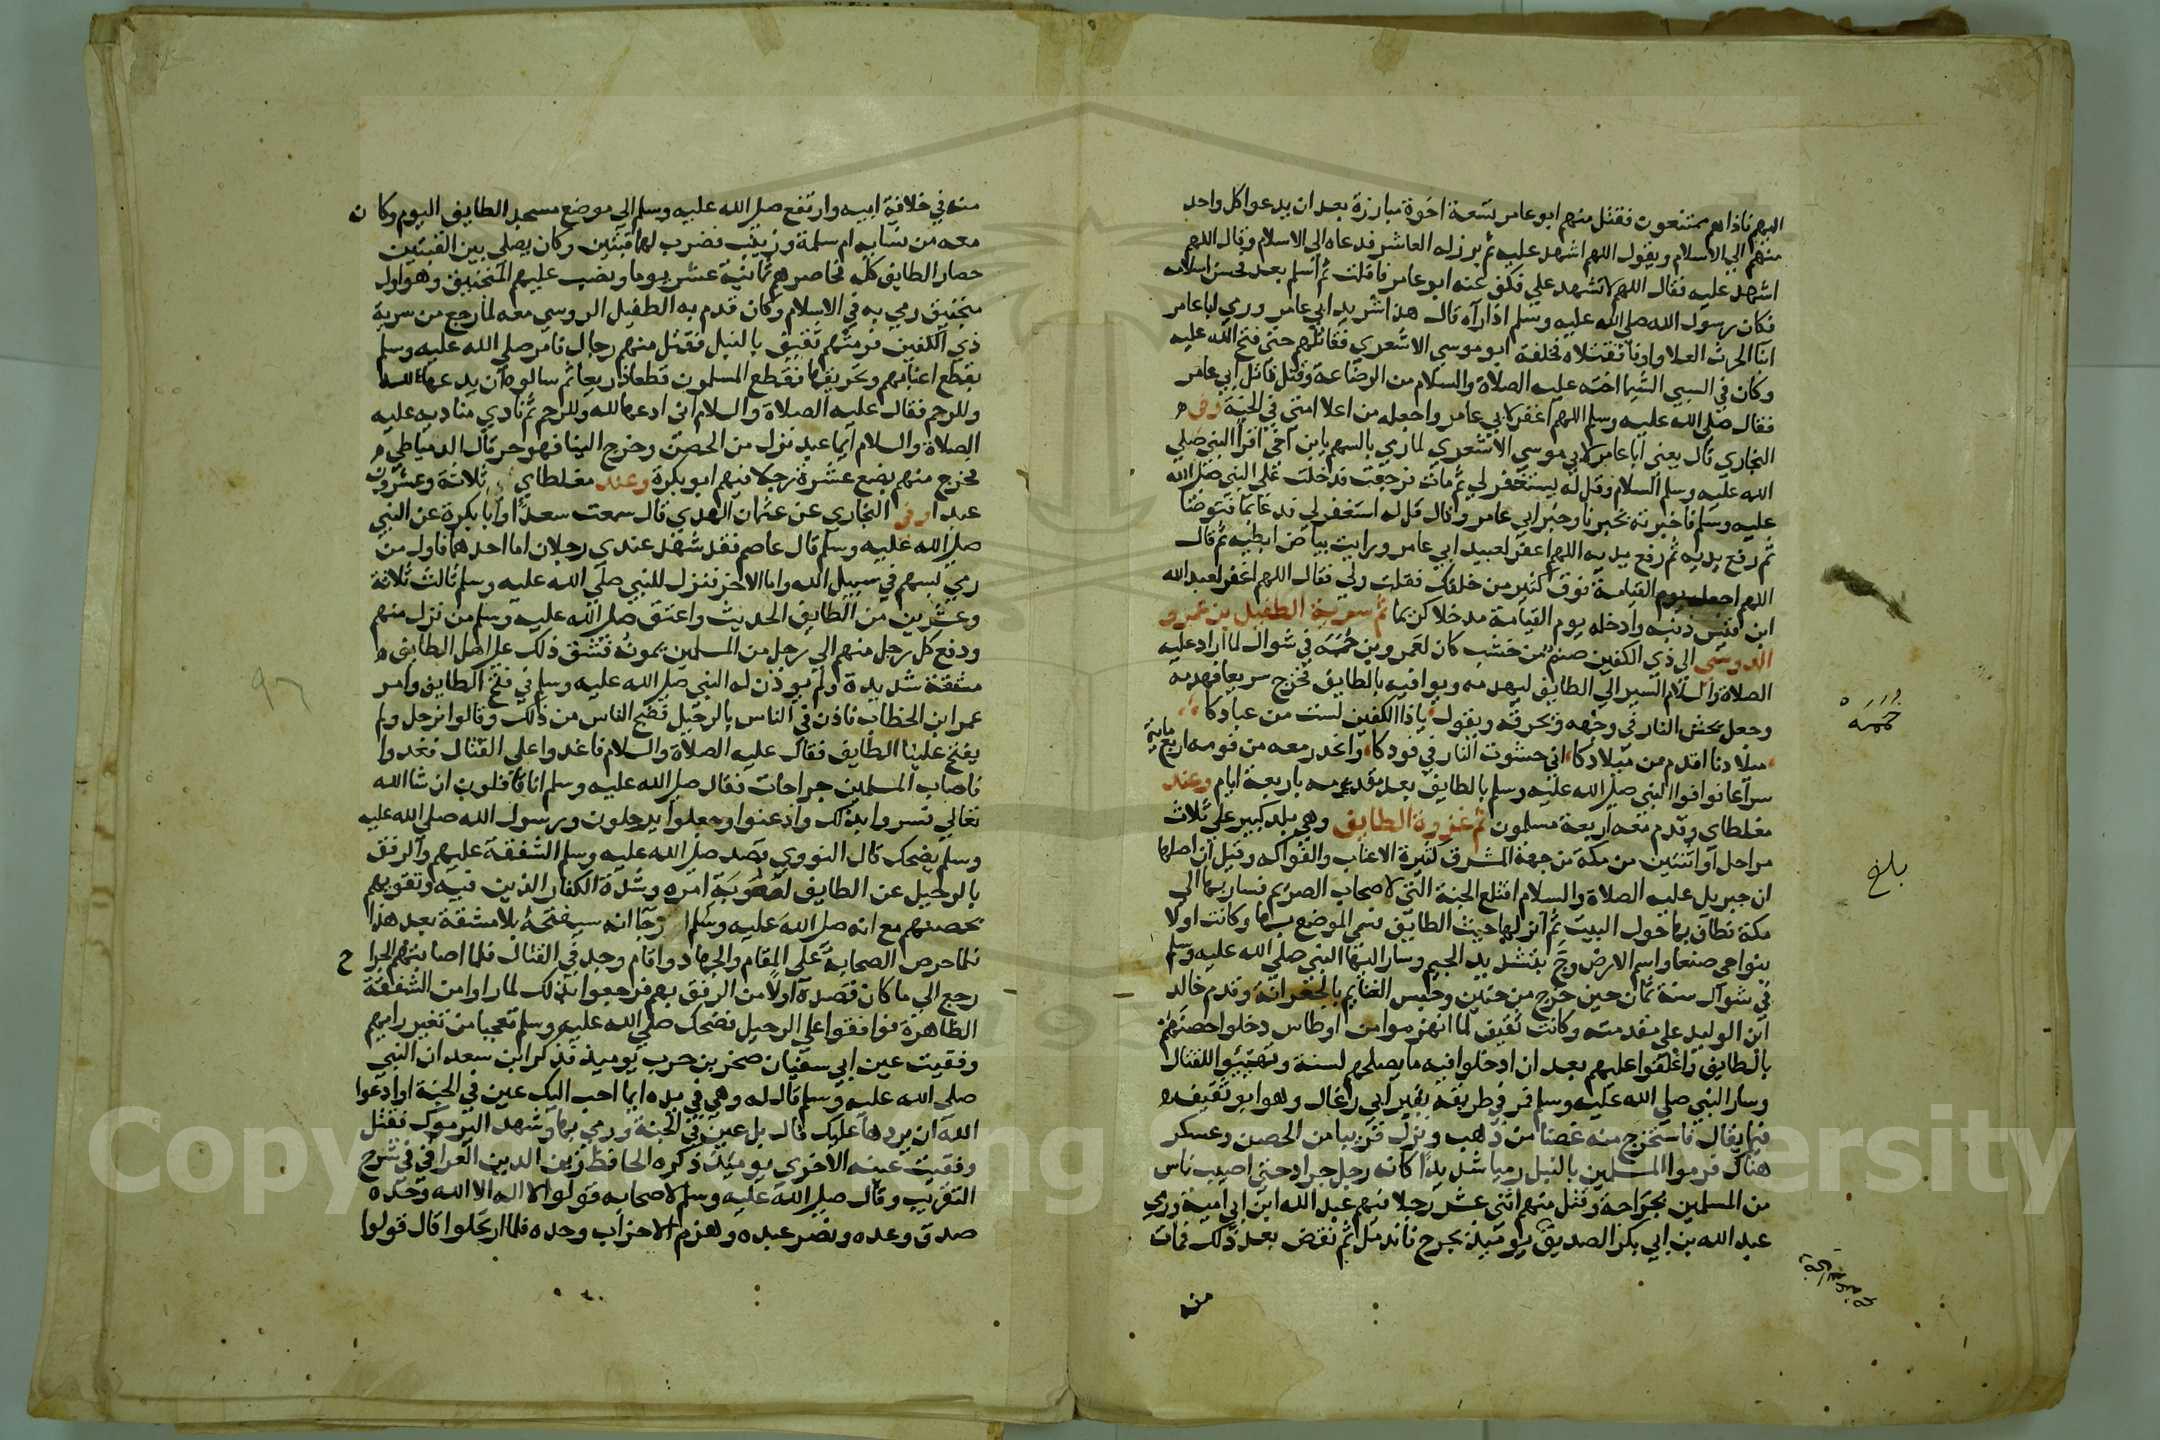 اليهم فاذا هم ممتنعون فقتل منهم ابو عامر تسعة اخوة مبارزة بعد ان يدعوا كل واحد
منهم الي الاسلام ويقول اللهم اشهد عليه ثم برز له العاشر فدعاه الي الاسلام وقال اللهم
اشهد عليه فقال اللهم لا تشهد علي فكف عنه ابو عامر فافلت ثم اسلم بعد فحسن اسلامه
فكان رسول الله صلي الله عليه وسلم اذا رآه قال هذا شريد ابي عامر ورمي ابا عامر
ابنا الحرث العلا واوفا فقتلاه فخلفه ابو موسي الاشعري فقاتلهم حتى فتح الله عليه
وكان في السبي الشيما اخته عليه الصلاة والسلام من الرضاعة وقتل قاتل ابي عامر
فقال صلي الله عليه وسلم اللهم اغفر لابي عامر واجعله من اعلا امتي في الجنة وفي
البخاري قال يعني ابا عامر لابي موسي الاشعري لما رمي بالسهم يا بن اخي اقرا النبي صلي
الله عليه وسلم السلام وقل له يستغفر لي ثم مات فرجعت فدخلت علي النبي صلي الله
عليه وسلم فاخبرته بخبرنا وخبر ابي عامر وقال قل له استغفر لي فدعا بما فتوضا
ثم رفع يديه ثم رفع يديه اللهم اغفر لعبيد ابي عامر ورايت بياض ابطيه ثم قال
اللهم اجعله يوم القيامة فوق كثير من خلقك فقلت ولي فقال اللهم اغفر لعبد الله
ابن قيس ذنبه وادخله يوم القيامة مدخلا كريما ثم سرية الطفيل بن عمرو
الدوسي الي ذي الكفين صنم من خشب كان لعمرو بن حممه في شوال لما اراد عليه
الصلاة والسلام السير الي الطايف ليهدمه ويوافيه بالطايف فخرج سريعا فهدمه
وجعل يحش النار في وجهه ويحرقه ويقول يا ذا الكفين لست من عبادكا
ميلادنا اقدم من ميلادكا اني حشوت النار في فودكا وانحدر معه من قومه اربع ماية
سراعا فوافوا النبي صلي الله عليه وسلم بالطايف بعد مقدمه باربعة ايام وعند
مغلطاي وقدم معه اربعة مسلمون ثم غزوة الطايف وهي بلد كبير علي ثلاث
مراحل او اثنتين من مكة من جهة المشرق كثيرة الاعناب والفواكه وقيل ان اصلها
ان جبريل عليه الصلاة والسلام اقتلع الجنة التي لاصحاب الصريم فسار بها الي
مكة فطاف بها حول البيت ثم انزلها حيث الطايف فسمي الموضع بها وكانت اولا
بنواحي صنعا واسم الارض وج بتشديد الجيم وسار اليها النبي صلي الله عليه وسلم
في شوال سنة ثمان حين خرج من حنين وحبس الغنايم بالجعرانة وقدم خالد
ابن الوليد علي مقدمته وكانت ثقيف لما انهزموا من اوطاس دخلوا حصنهم
بالطايف واغلقوا عليهم بعد ان ادخلوا فيه ما يصلحهم لسنة وتهيئوا للقتال
وسار النبي صلي الله عليه وسلم فمر في طريقه بقبر ابي رغال وهو ابو ثقيف
فيما يقال فاستخرج منه غصنا من ذهب ونزل قريبا من الحصن وعسكر
هناك فرموا المسلمين بالنبل رميا شديدا كانه رجل جراد حتى اصيب ناس
من المسلمين بجراحة وقتل منهم اثني عشر رجلا فيهم عبد الله ابن ابي امية ورمي
عبد الله بن ابي بكر الصديق يومئذ بجرح فاندمل ثم نقض بعد ذلك فمات
منه
حممه
بلغ
منه في خلافة ابيه وارتفع صلي الله عليه وسلم الي موضع مسجد الطايف اليوم وكان
معه من نسايه ام سلمة وزينب فضرب لهما قبتين وكان يصلي بين القبتين
حصار الطايف كله فحاصرهم ثمانية عشر يوما ونصب عليهم المنجنيق وهو اول
منجنيق رمي به في الاسلام وكان قدم به الطفيل الدوسي معه لما رجع من سرية
ذي الكفين فرمتهم ثقيف بالنبل فقتل منهم رجال فامر صلي الله عليه وسلم
بقطع اعنابهم وتحريقها فقطع المسلمون قطعا ذريعا ثم سالوه ان يدعها لله
وللرحم فقال عليه الصلاة والسلام اني ادعها لله وللرحم ثم نادي مناديه عليه
الصلاة والسلام ايما عبد نزل من الحصن وخرج الينا فهو حر قال الدمياطي
فخرج منهم بضع عشرة رجلا فيهم ابو بكرة وعند مغلطاي ثلاثة وعشرون
عبدا وفي البخاري عن عثمان النهدي قال سمعت سعدا وابا بكرة عن النبي
صلي الله عليه وسلم قال عاصم فقد شهد عندي رجلان اما احدهما فاول من
رمي بسهم في سبيل الله واما الاخر فنزل للنبي صلي الله عليه وسلم ثالث ثلاثة
وعشرين من الطايف الحديث واعتق صلي الله عليه وسلم من نزل منهم
ودفع كل رجل منهم الي رجل من المسلمين يمونه فشق ذلك علي اهل الطايف
مشقة شديدة ولم يوذن له النبي صلي الله عليه وسلم في فتح الطايف وامر
عمر ابن الخطاب فاذن في الناس بالرحيل فضج الناس من ذلك وقالوا نرحل ولم
يفتح علينا الطايف فقال عليه الصلاة والسلام فاغدوا علي القتال فغدوا
فاصاب المسلمين جراحات فقال صلي الله عليه وسلم انا قافلون ان شا الله
تعالي فسروا بذلك واذعنوا وجعلوا يرحلون ورسول الله صلي الله عليه
وسلم يضحك قال النووي قصد صلي الله عليه وسلم الشفقة عليهم والرفق
بالرحيل عن الطايف لصعوبة امره وشدة الكفار الذين فيه وتقويهم
بحصنهم مع انه صلي الله عليه وسلم رجا انه سيفتحه بلا مشقة بعد هذا
فلما حرص الصحابة علي المقام والجهاد اقام وجد في القتال فلما اصابتهم الجراح
رجع الي ما كان قصده اولا من الرفق بهم فرجعوا بذلك لما راوا من الشفقة
الظاهرة فوافقوا علي الرحيل فضحك صلي الله عليه وسلم تعجبا من تغير رايهم
وفقيت عين ابي سفيان صخر بن حرب يوميذ فذكر ابن سعد ان النبي
صلي الله عليه وسلم قال له وهي في يده ايما احب اليك عين في الجنة او ادعوا
الله ان يردها عليك قال بل عين في الجنة ورمي بها وشهد اليرموك فقتل
وفقيت عينه الاخري يوميذ ذكره الحافظ زين الدين العراقي في شرح
التقريب وقال صلي الله عليه وسلم لاصحابه قولوا لا اله الا الله وحده
صدق وعده ونصر عبده وهزم الاحزاب وحده فلما ارتحلوا قال قولوا